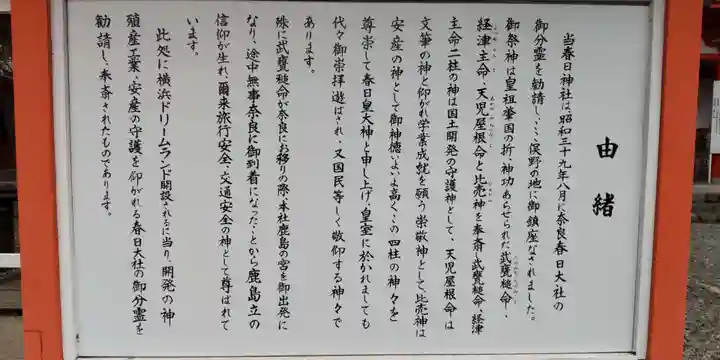 由緒
当春日神社は、昭和三十九年八月に奈良春日大社の
御分霊を勧請し、ここ俣野の地に御鎮座なされました。
御祭神は皇祖肇国の折、神功あらせられた武甕槌命、
経津主命、天児屋根命と比売神を奉斎、武甕槌命、経津
主命二柱の神は国土開発の守護神として、天児屋根命は
文筆の神と仰がれ学業成就を願う崇敬神として、比売神は
安産の神として御神徳いよいよ高く、この四柱の神々を
尊崇して春日皇大神と申し上げ、皇室に於かれましても
代々御崇拝遊ばされ、又国民等しく敬仰する神々で
あります。
殊に武甕槌命が奈良にお移りの際、本社鹿島の宮を御出発に
なり、途中無事奈良に御到着になったことから鹿島立の
信仰が生れ、爾来旅行安全、交通安全の神として尊ばれて
います。
此処に横浜ドリームランド開設されるに当り、開発の神
殖産工業、安産の守護を仰がれる春日大社の御分霊を
勧請し、奉斎されたものであります。